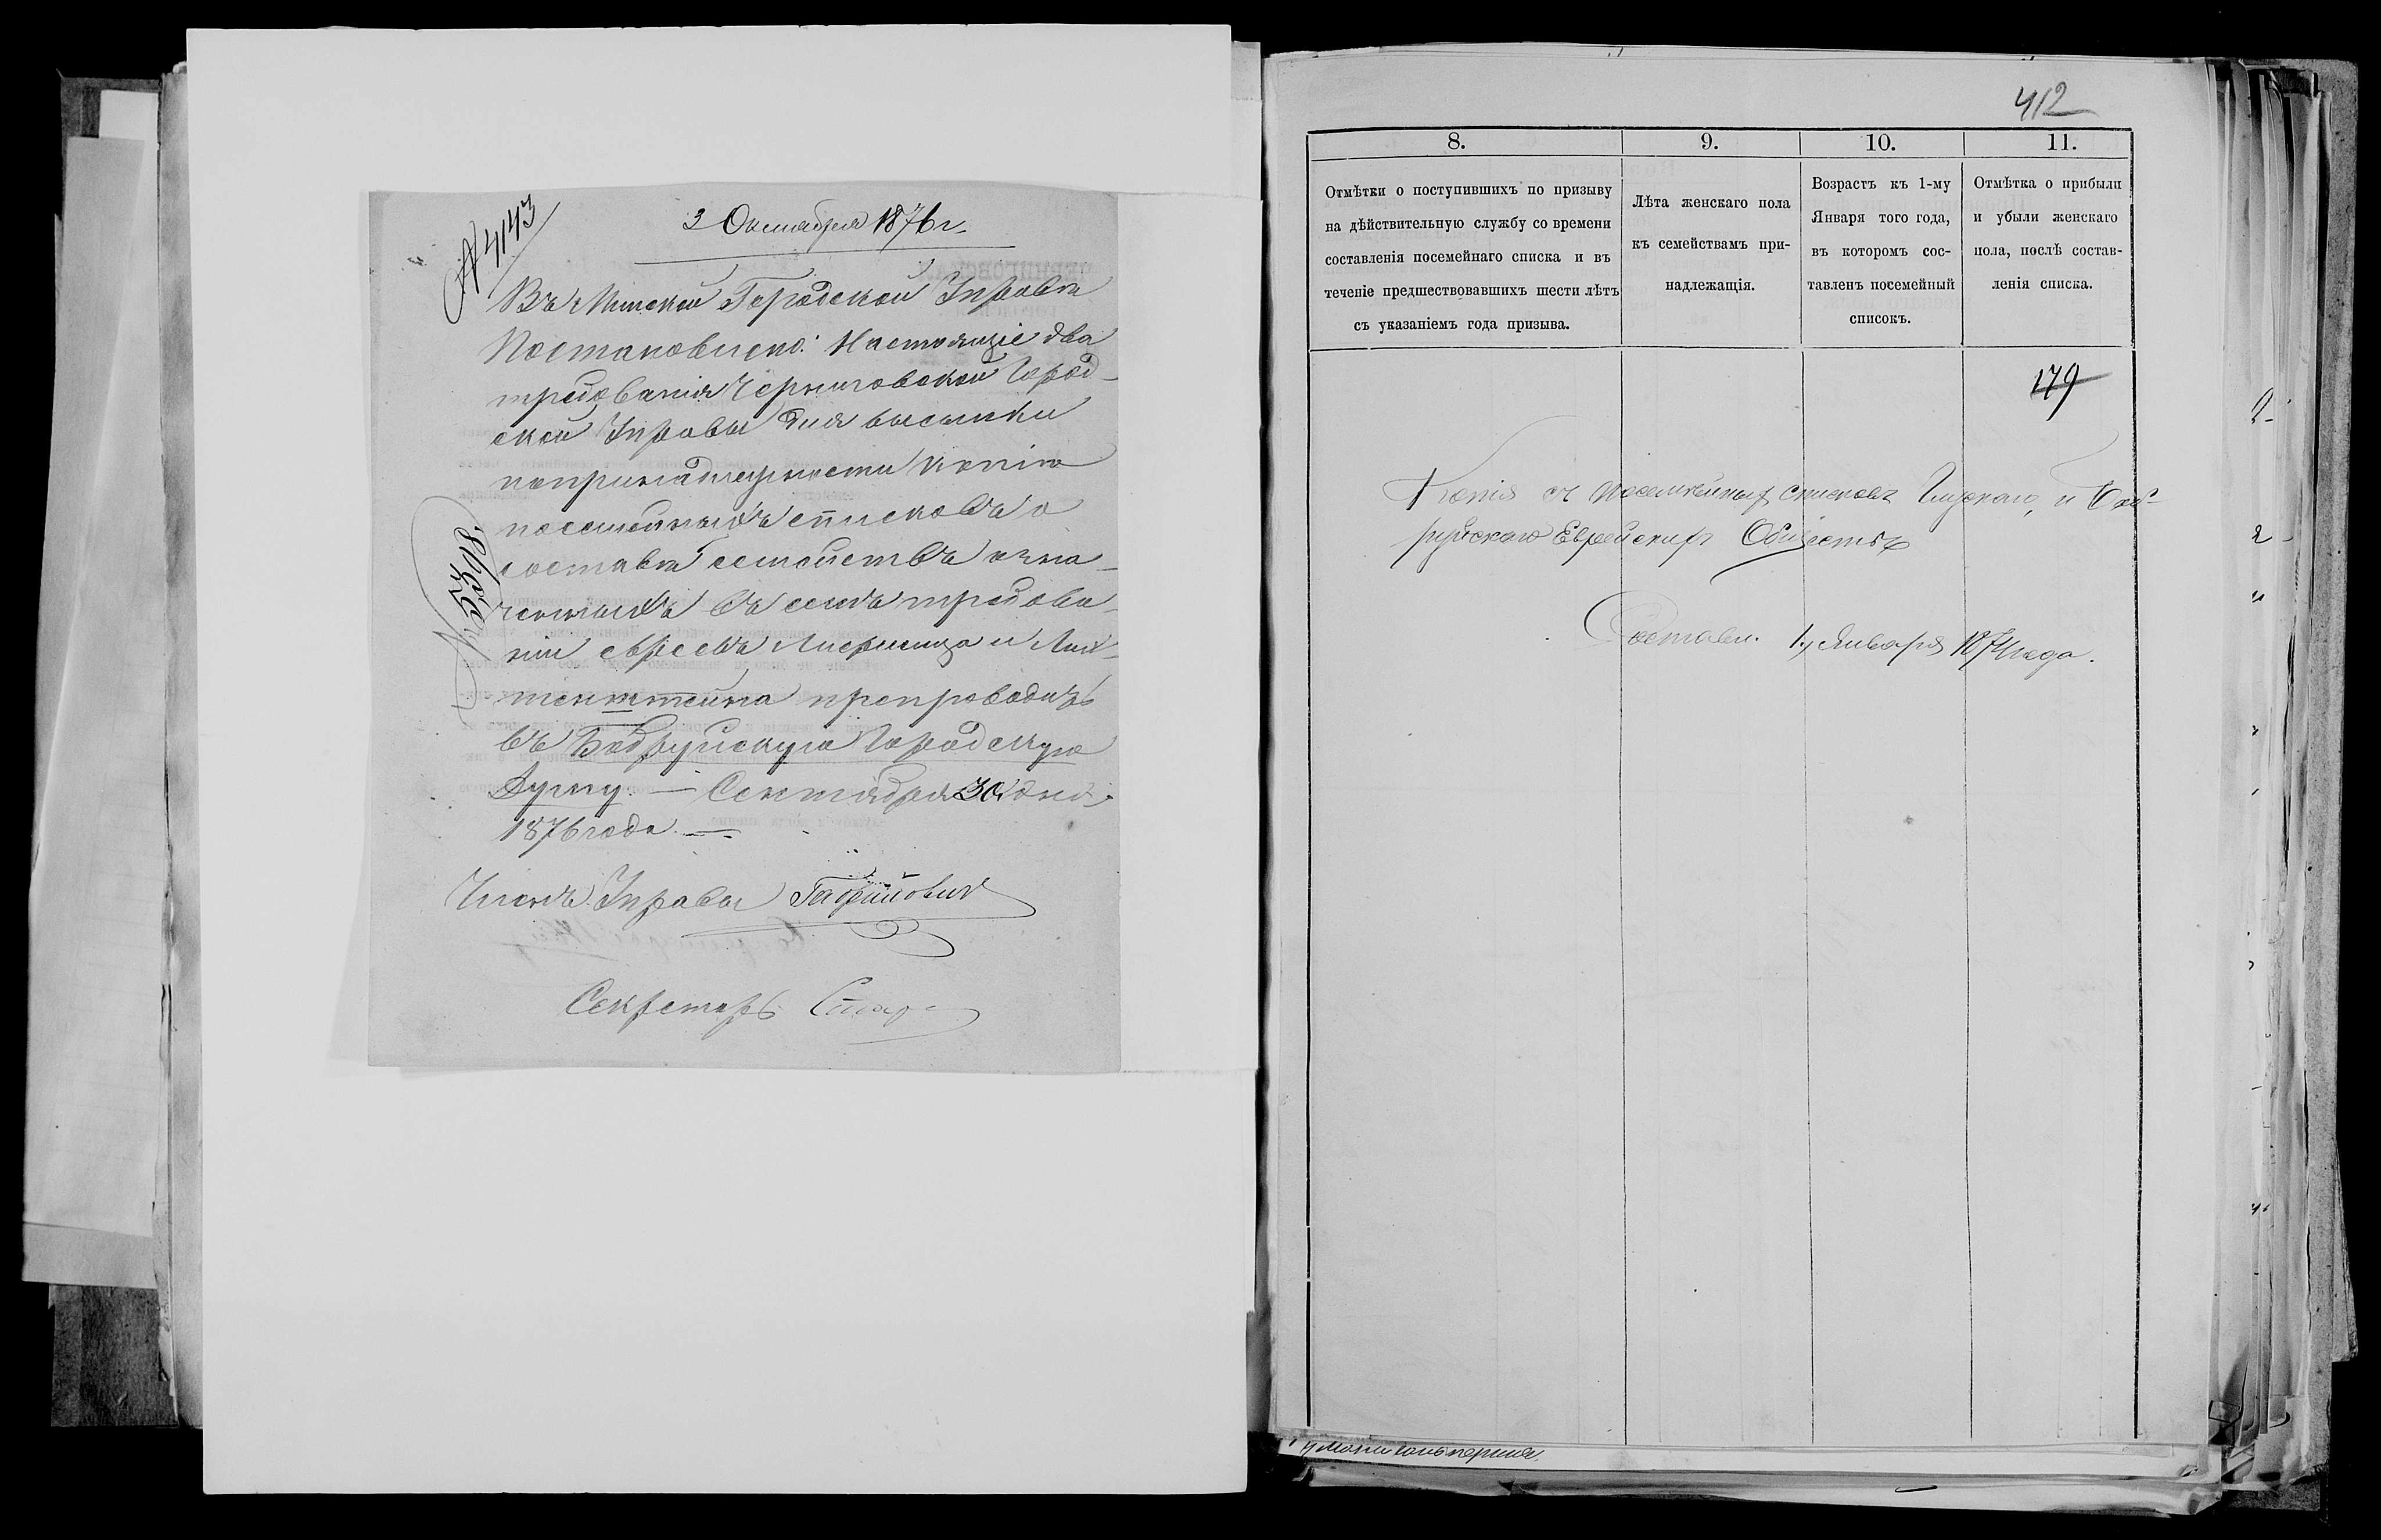 № 4143
3 Октября 1876 г.
Въ Минской Городской Управѣ
Постановлено: Настоящіе два
требованія Черниговской Город-
ской Управы для высылки
по принадлежности копіи
посемейныхъ списковъ о
составѣ семействъ озна-
ченныхъ въ семъ требова-
ніи евреевъ и Лих-
тенштейна препроводить
въ Бобруйскую Городскую
Думу. — Сентября 30 дня
1876 года. —
Членъ Управы
Секретарь
412
8.
9.
10.
11.
Отмѣтки о поступившихъ по призыву
на дѣйствительную службу со времени
составленія посемейнаго списка и въ
теченіе предшествовавшихъ шести лѣтъ
съ указаніемъ года призыва.
Лѣта женскаго пола
къ семействамъ при-
надлежащія.
Возрастъ къ 1-му
Января того года,
въ которомъ сос-
тавленъ посемейный
списокъ.
Отмѣтка о прибыли
и убыли женскаго
пола, послѣ состав-
ленія списка.
179
Копія съ посемейныхъ списковъ Глускаго, и Боб-
руйскаго Еврейскихъ Обществъ
Составл. 1. Января 1874 года.